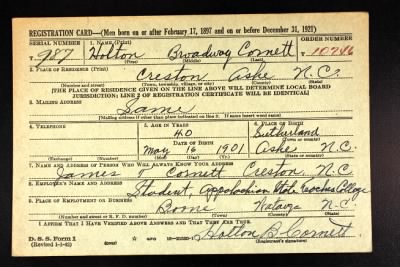 REGISTRATION CARD—(Men born on or after February 17, 1897 and on or before December 31, 1921)
SERIAL NUMBER 1. NAME (Print) ORDER NUMBER
T 987 Holton Broadway Cornett T 10746
(First) (Middle) (Last)
2. PLACE OF RESIDENCE (Print)
Creston Ashe N.C.
(Number and street) (Town, township, village, or city) (County) (State)
[THE PLACE OF RESIDENCE GIVEN ON THE LINE ABOVE WILL DETERMINE LOCAL BOARD
JURISDICTION; LINE 2 OF REGISTRATION CERTIFICATE WILL BE IDENTICAL]
3. MAILING ADDRESS
Same
[Mailing address if other than place indicated on line 2. If same insert word same]
4. TELEPHONE 5. AGE IN YEARS 6. PLACE OF BIRTH
40 Sutherland
DATE OF BIRTH (Town or county)
May 16 1901 Ashe N.C.
(Exchange) (Number) (Mo.) (Day) (Yr.) (State or country)
7. NAME AND ADDRESS OF PERSON WHO WILL ALWAYS KNOW YOUR ADDRESS
James T Cornett Creston N.C.
8. EMPLOYER'S NAME AND ADDRESS
Student, Appalachian State Teachers College
9. PLACE OF EMPLOYMENT OR BUSINESS
Boone Watauga N.C.
(Number and street or R. F. D. number) (Town) (County) (State)
I AFFIRM THAT I HAVE VERIFIED ABOVE ANSWERS AND THAT THEY ARE TRUE.
D. S. S. Form 1 Holton B. Cornett
(Revised 1-1-42) (over) (Registrant's signature)